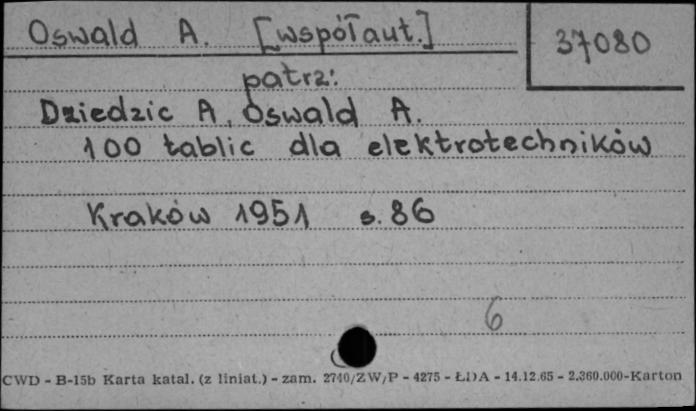 Oswald A. [współaut.]
37080
patrz:
Dziedzic A, Oswald A.
100 tablic dla elektrotechników
Kraków 1951 s. 86
6
CWD - B-15b Karta katal. (z liniat.) - zam. 2740/ZW/P - 4275 - ŁDA - 14.12.65 - 2.360.000-Karton